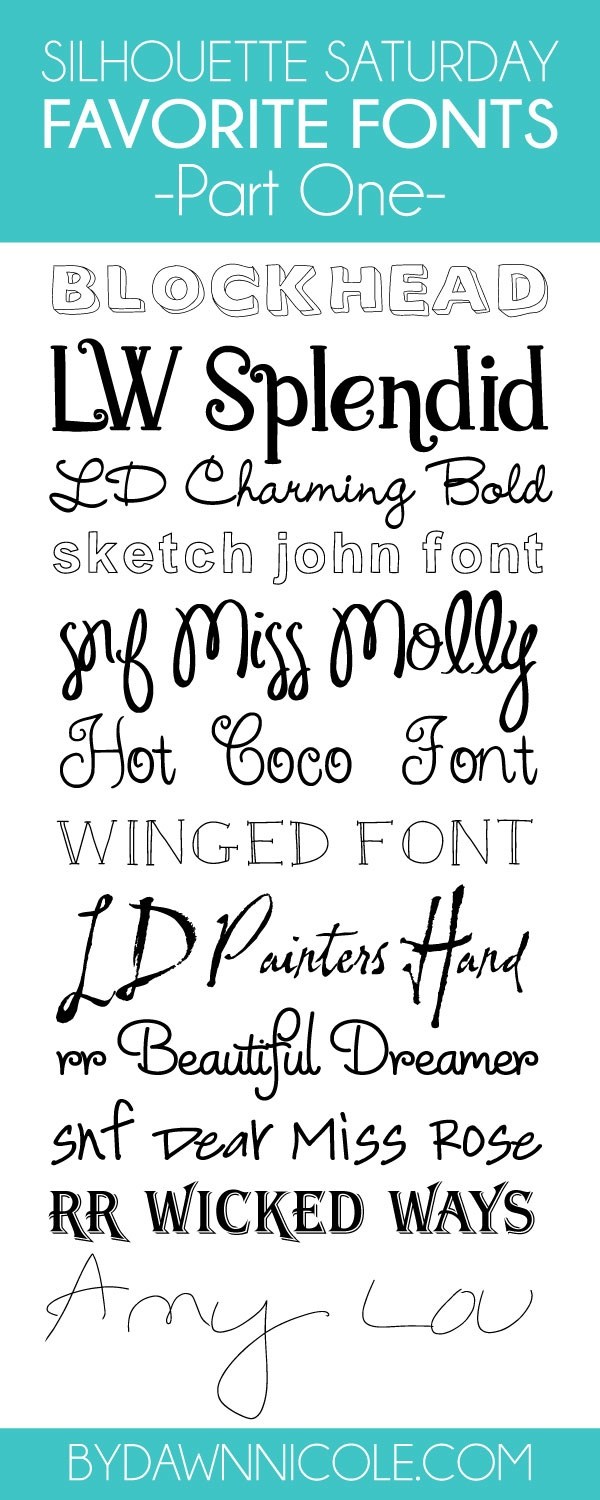 SILHOUETTE SATURDAY
FAVORITE FONTS
-Part One-
BLOCKHEAD
LW Splendid
LD Charming Bold
sketch john font
snf Miss Molly
Hot Coco Font
WINGED FONT
LD Painters Hand
rr Beautiful Dreamer
snf Dear Miss Rose
RR WICKED WAYS
Amy Lou
BYDAWNNICOLE.COM